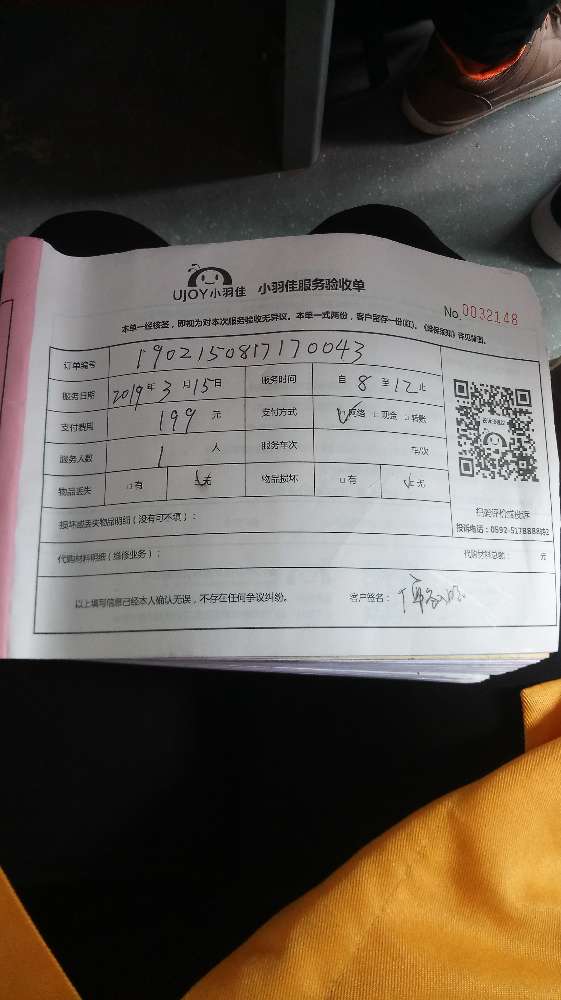 UJOY小羽佳 小羽佳服务验收单
No 0032148
本单一经核签，即视为对本次服务验收无异议。本单一式两份，客户留存一份(红)。
订单编号 1902150817170043
服务日期 2019年3月15日 服务时间 自8至12止
支付费用 199元 支付方式 ☑网络 □现金 □转账
服务人数 1人 服务车次 车次
物品丢失 □有 ☑无 物品损坏 □有 ☑无
扫码评价或投诉
投诉电话：0592-5178888转2
损坏或丢失物品明细（没有可不填）：
代购材料明细（维修业务）： 代购材料总额： 元
以上填写信息已经本人确认无误，不存在任何争议纠纷。 客户签名：